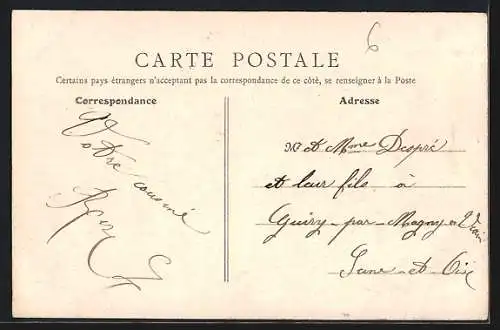 6
CARTE POSTALE
Certains pays étrangers n'acceptant pas la correspondance de ce côté, se renseigner à la Poste
Correspondance
Votre cousine
Adresse
Mr et Mme Despré
et leur fils à
Guiry-par-Magny en Vexin
Seine-et-Oise